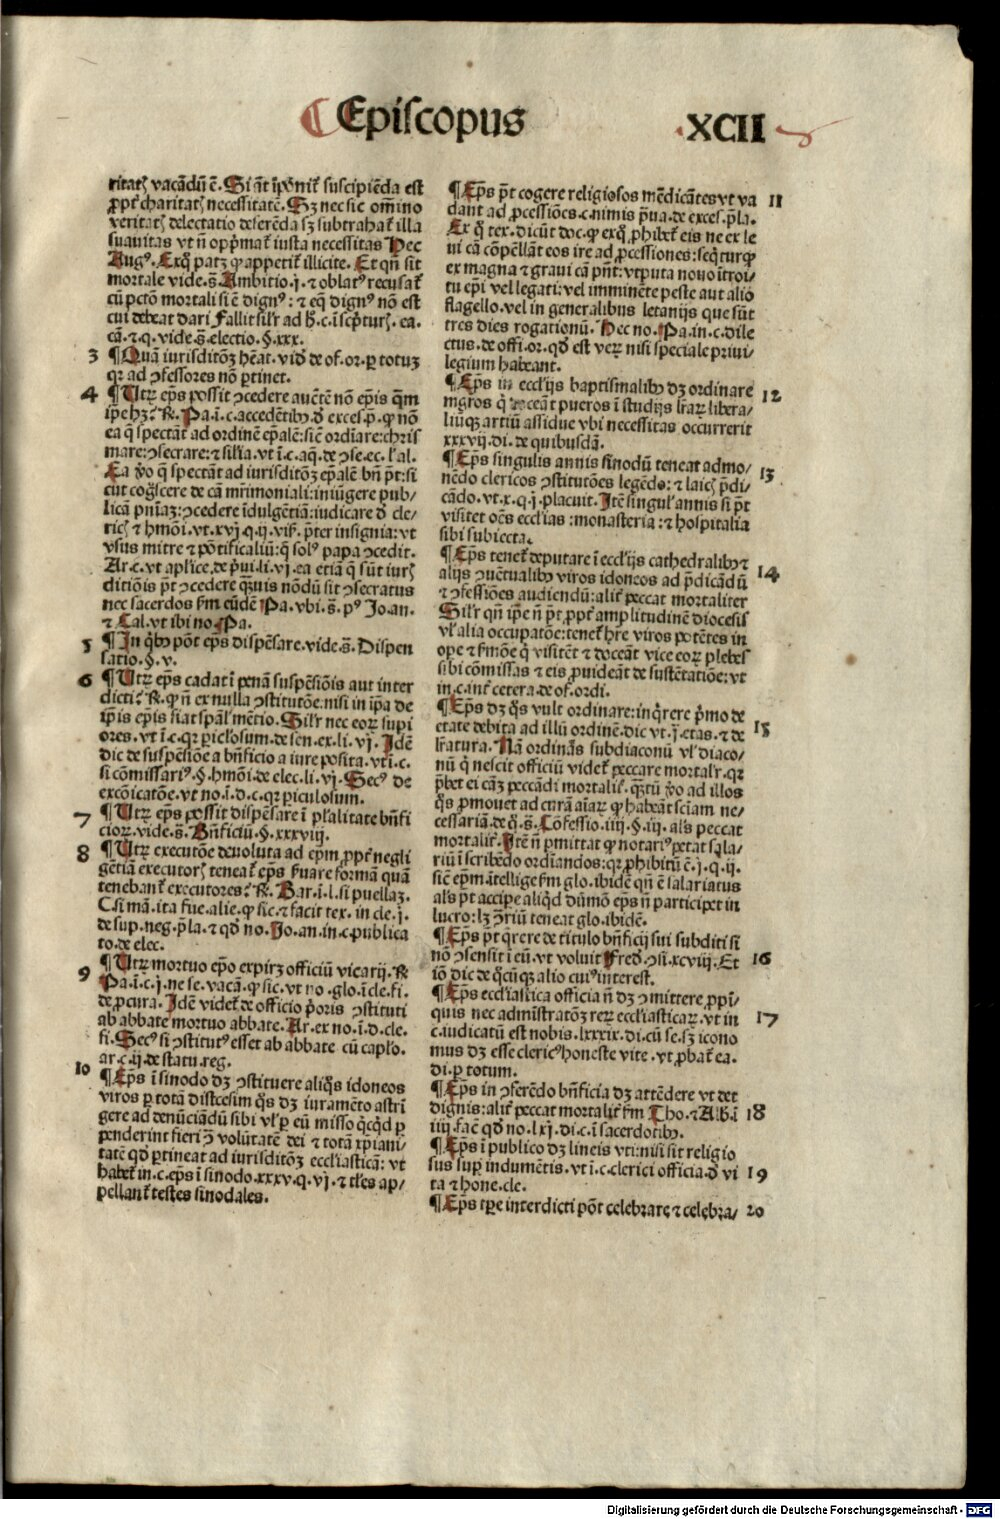 Episcopus
XCII
ritatꝭ vacādū ē. Si āt īpōnit᷑ suscipiēda est
ꝓpt̄ charitatꝭ necessitatē. Sꝫ nec sic om̄ino
veritatꝭ delectatio deserēda sꝫ subtrahat᷑ illa
suauitas vt n̄ opp̄mat᷑ iusta necessitas Hec
Augꝰ. Exq̇ patꝫ ꝙ appetit᷑ illicite. Et qn̄ sit
mortale vide.s̄. Ambitio.j. ⁊ oblatꝰ recusat᷑
cū pctō mortali si ē dignꝰ: ⁊ eq̄ dignꝰ nō est
cui debeat dari Fallit sil'r ad h̄.c.ī sc̄pturꝭ. ea.
cā.⁊.q. vide.s̄.electio.§.xxx.
3 ¶ Quā iurisditōꝫ hēat. vid̄ de of.or. ꝑ totuꝫ
qꝛ ad ↄfessores nō ꝑtinet.
4 ¶ Utꝝ ep̄s possit ↄcedere auctē nō ep̄is q̄m
ip̄e hꝫ? ℞. Pa.ī.c.accedētibꝰ.d̄ exces.p̄. ꝙ nō
ea q̄ spectāt ad ordinē ep̄alē: sic̄ ordīare: chris
mare: ↄsecrare: ⁊ sil'ia. vt ī.c.aq̄.de ↄse.ec. l'al.
Ea v̄o q̄ spectāt ad iurisditōꝫ ep̄alē bn̄ p̄t: si
cut cog̈scere de cā mr̄imoniali: iniūgere pub/
licā pn̄iaꝫ: ↄcedere īdulgētiā: iudicare d̄ cle/
ricꝭ ⁊ hmōi. vt.xvj.q.ij. visꝭ. p̄ter insignia: vt
vsus mitre ⁊ pōtificaliū: q̄ solꝰ papa ↄcedit.
Ar.c.vt apl'ice.de p̄ui.li.vj. ea etiā q̄ sūt iurꝭ
ditiōis p̄t ↄcedere q̄uis nōdū sit ↄsecratus
nec sacerdos fm eūdē Pa.vbi.s̄. pꝰ Jo.an.
⁊ Cal. vt ibi no. Pa.
5 ¶ In q̇bꝰ pōt ep̄s dispēsare. vide.s̄. Dispen
satio.§.v.
6 ¶ Utꝝ ep̄s cadat ī penā suspēsiōis aut inter
dicti? ℞. ꝙ n̄ ex nulla ↄstitutōe: nisi in ip̄a de
ip̄is ep̄is fiat spāl' mētio. Sil'r nec eoꝝ supi
ores. vt ī.c.qꝛ ꝑiclosum.de sen.ex.li.vj. Idē
dic de suspēsiōe a bn̄ficio a iure posita. vt ī.c.
si cōmissariꝰ.§.hmōi.de elec.li.vj. Secꝰ de
excōicatōe. vt no.ī.d.c.qꝛ ꝑiculosum.
7 ¶ Utꝝ ep̄s possit dispēsare ī pl'alitate bn̄fi
cioꝝ. vide.s̄. Bn̄ficiū.§.xxxviij.
8 ¶ Utꝝ executōe deuoluta ad ep̄m ꝓpt̄ negli
gētiā executorꝭ teneat᷑ ep̄s ẜuare formā quā
tenebant᷑ executores? ℞. Bar.ī.l.si puellaꝫ.
C.si mā.ita fue.alie. ꝙ sic. ⁊ facit tex.in cle.j.
de sup.neg.p̄la.⁊ qd no. Jo.an.in.c.publica
to.de elec.
9 ¶ Utꝝ mortuo ep̄o expirꝫ officiū vicarij. ℞
Pa.ī.c.j.ne se.vacā. ꝙ sic. vt no.glo.ī cle.fi.
de ꝓcura. Idē videt᷑ de officio p̄oris ↄstituti
ab abbate mortuo abbate. Ar.ex no.ī.d.cle.
fi. Secꝰ si ↄstitutꝰ esset ab abbate cū capl'o.
ar.c.ij.de statu.reg.
10 ¶ Ep̄s ī sinodo dꝫ ↄstituere aliq̄s idoneos
viros ꝑ totā diocesim q̄s dꝫ iuramēto astrī
gere ad denūciādū sibi vl' ꝑ eū misso q̇cq̇d ꝑ
penderint fieri ↄ̄ volūtatē dei ⁊ totā xp̄iani/
tatē qd ꝑtineat ad iurisditōꝫ eccl'iasticā: vt
habet᷑ in.c.ep̄s ī sinodo.xxxv.q.vj. ⁊ tl'es ap/
pellant᷑ testes sinodales.
¶ Ep̄s p̄t cogere religiosos mēdicātes vt va 11
dant ad ꝓcessiōes.c.nimis p̄ua.de exces.p̄la.
Ex q̇ tex. dicūt doc. ꝙ exq̇ ꝓhibet᷑ eis ne ex le
ui cā cōpellāt eos ire ad ꝓcessiones: seq̇tur ꝙ
ex magna ⁊ graui cā pn̄t: vtputa nouo ītroi/
tu ep̄i vel legati: vel imminēte peste aut alio
flagello. vel in generalibus letanijs que sūt
tres dies rogationū. Hec no. Pa.in.c.dile
ctus.de offi.or. qd est verꝝ nisi speciale priui/
legium habeant.
¶ Ep̄s in eccl'ijs baptismalibꝰ dꝫ ordinare 12
mgros q̇ doceāt pueros ī studijs l'raꝝ libera/
liūqꝫ artiū assidue vbi necessitas occurrerit
xxxvij.di.de quibusdā.
¶ Ep̄s singulis annis sinodū teneat admo/ 13
nēdo clericos ↄstitutōes legēdo: ⁊ laicꝭ p̄di/
cādo. vt.x.q.j.placuit. Itē singul' annis si p̄t
visitet oēs eccl'ias: monasteria: ⁊ hospitalia
sibi subiecta.
¶ Ep̄s tenet᷑ deputare ī eccl'ijs cathedralibꝰ ⁊ 14
alijs ↄuētualibꝰ viros idoneos ad p̄dicādū
⁊ ↄfessiōes audiendū: alit᷑ peccat mortaliter
Sil'r qn̄ ip̄e n̄ p̄t ꝓpt̄ amplitudinē diocesis
vl' alia occupatōe: tenet᷑ hr̄e viros potētes in
ope ⁊ ẜmōe q̇ visitēt ⁊ doceāt vice eoꝝ plebes
sibi cōmissas ⁊ eis ꝓuideāt de sustētatiōe: vt
in.c.int᷑ cetera.de of.ordi.
¶ Ep̄s dꝫ q̄s vult ordinare: inq̇rere p̄mo de 15
etate debita ad illū ordinē. dic vt.j. etas. ⁊ de
l'ratura. Nā ordinās subdiaconū vl' diaco/
nū q̇ nescit officiū videt᷑ peccare mortal'r. qꝛ
p̄bet ei cāꝫ peccādi mortalit᷑. q̄tū v̄o ad illos
q̄s ꝓmouet ad curā aīaꝝ ꝙ habeāt sciam ne/
cessariā. de q̇.s̄. Cōfessio.iiij.§.iij. al's peccat
mortalit᷑. Itē n̄ ꝑmittat ꝙ notariꝰ petat sala/
riū ī scribēdo ordīandos: qꝛ ꝓhibitū ē.j.q.ij.
sic̄ ep̄m. ītellige fm glo.ibidē qn̄ ē salariatus
al's p̄t accipe aliq̇d dūmō ep̄s n̄ participet in
lucro: lꝫ ↄ̄riū teneat glo.ibidē.
¶ Ep̄s p̄t q̄rere de titulo bn̄ficij sui subditi si
nō ↄsensit ī eū. vt voluit Fred̄. ↄsi.xcviij. Et 16
iō dic de q̇cūqꝫ alio cuiꝰ interest.
¶ Ep̄s eccl'iastica officia n̄ dꝫ ↄmittere ꝓpi̅/
quis nec admīstratōꝫ reꝝ eccl'iasticaꝝ. vt in 17
c.iudicatū est nobis.lxxxix.di. cū se. sꝫ icono
mus dꝫ esse clericꝰ honeste vite. vt ꝓbat᷑ ea.
di.ꝑ totum.
¶ Ep̄s in ↄferēdo bn̄ficia dꝫ attēdere vt det
dignis: alit᷑ peccat mortalit᷑ fm Tho.⁊ Alb.ī 18
iiij. fac̄ qd no.lxj.di.c.ī sacerdotibꝰ.
¶ Ep̄s ī publico dꝫ lineis vti: nisi sit religio
sus sup̄ indumētis. vt ī.c.clerici officia.d̄ vi 19
ta ⁊ hone.cle.
¶ Ep̄s tꝑe interdicti pōt celebrare ⁊ celebra/ 20
Digitalisierung gefördert durch die Deutsche Forschungsgemeinschaft - DFG